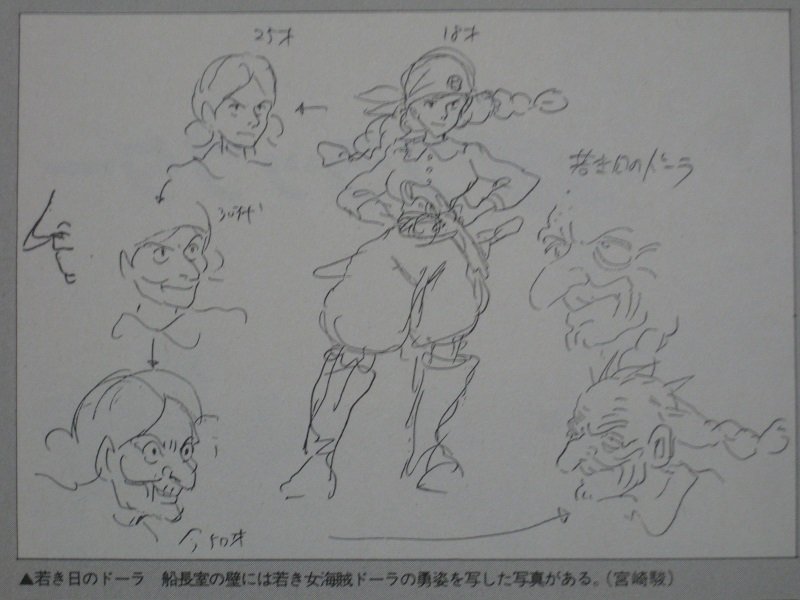 25才
18才
若き日のドーラ
30代
今50才
▲若き日のドーラ　船長室の壁には若き女海賊ドーラの勇姿を写した写真がある。(宮崎駿)